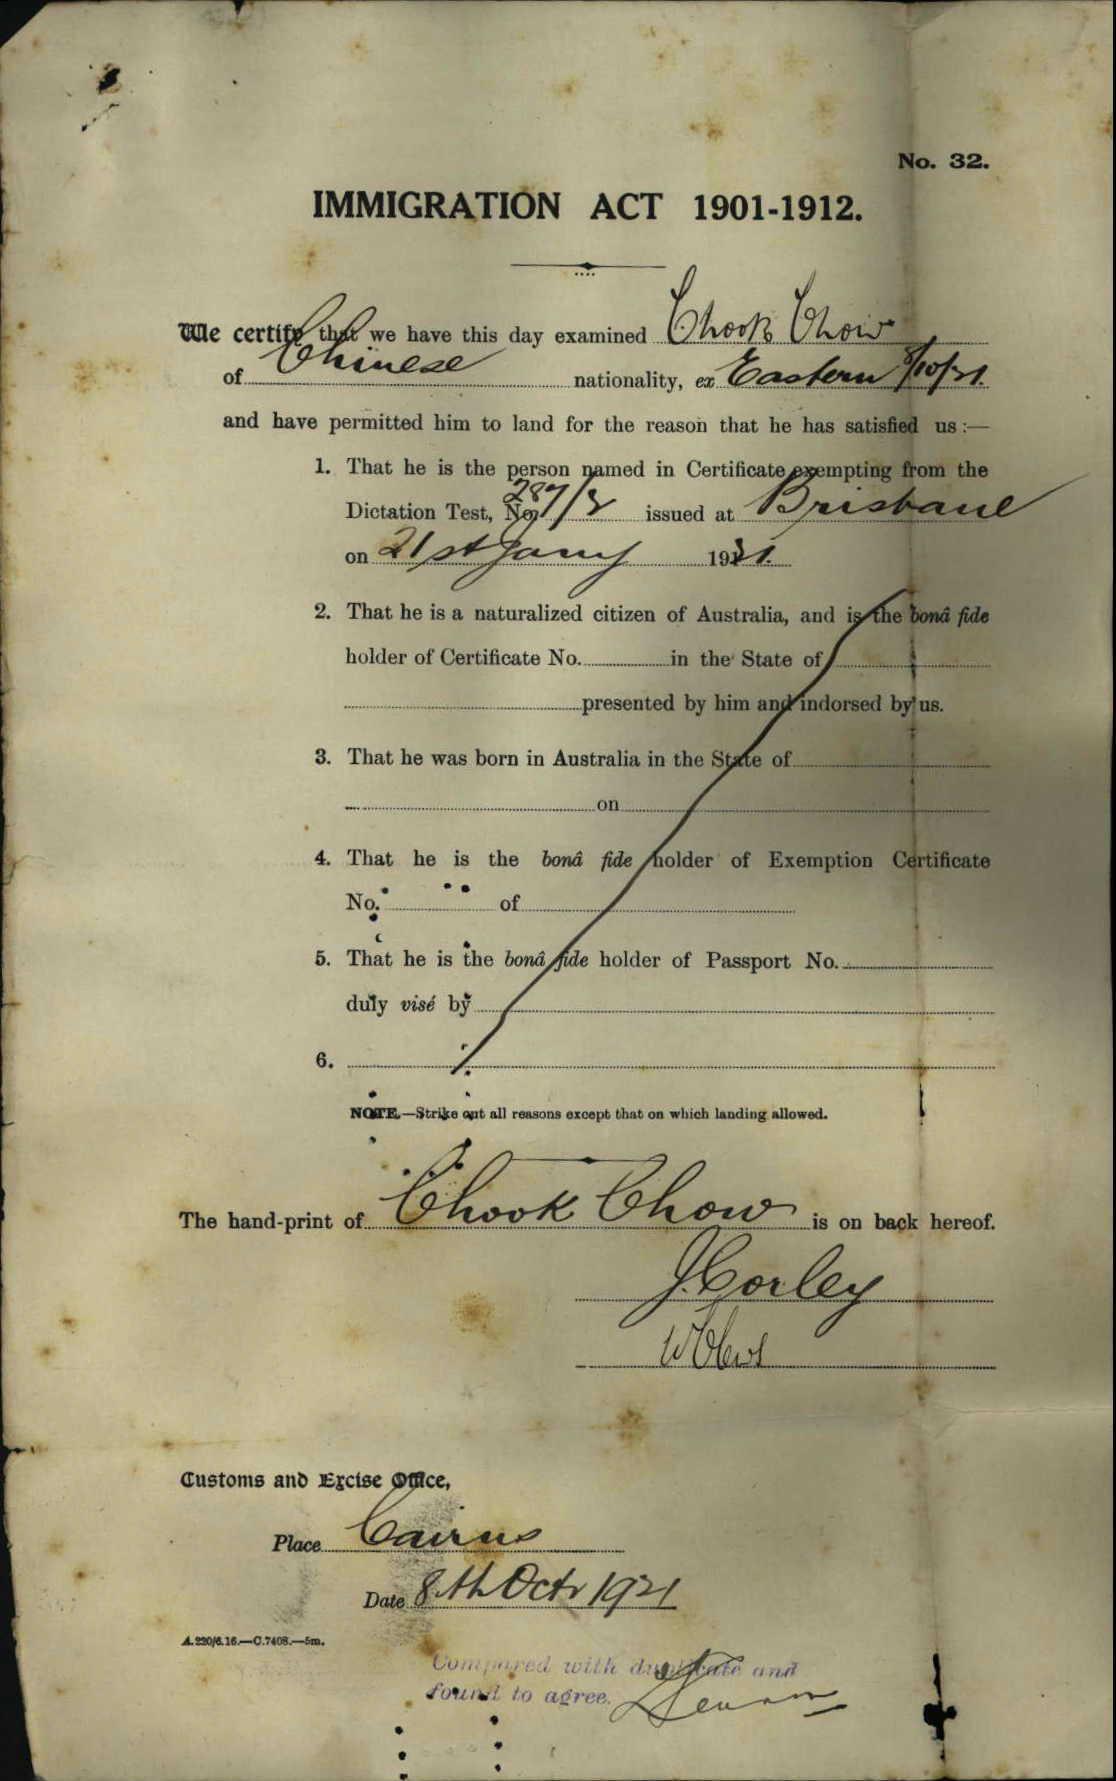 No. 32.
IMMIGRATION ACT 1901-1912.
We certify that we have this day examined Chook Chow
of Chinese nationality, ex Eastern 8/10/21.
and have permitted him to land for the reason that he has satisfied us :—
1. That he is the person named in Certificate exempting from the
Dictation Test, No. 287/3 issued at Brisbane
on 21st Jany 1921.
2. That he is a naturalized citizen of Australia, and is the bonâ fide
holder of Certificate No. in the State of
presented by him and indorsed by us.
3. That he was born in Australia in the State of
on
4. That he is the bonâ fide holder of Exemption Certificate
No. of
5. That he is the bonâ fide holder of Passport No.
duly visé by
6.
NOTE.—Strike out all reasons except that on which landing allowed.
The hand-print of Chook Chow is on back hereof.
J. Corley
Customs and Excise Office,
Place Cairns
Date 8th Octr 1921
A.220/6.16.—C.7408.—5m.
Compared with duplicate and
found to agree.